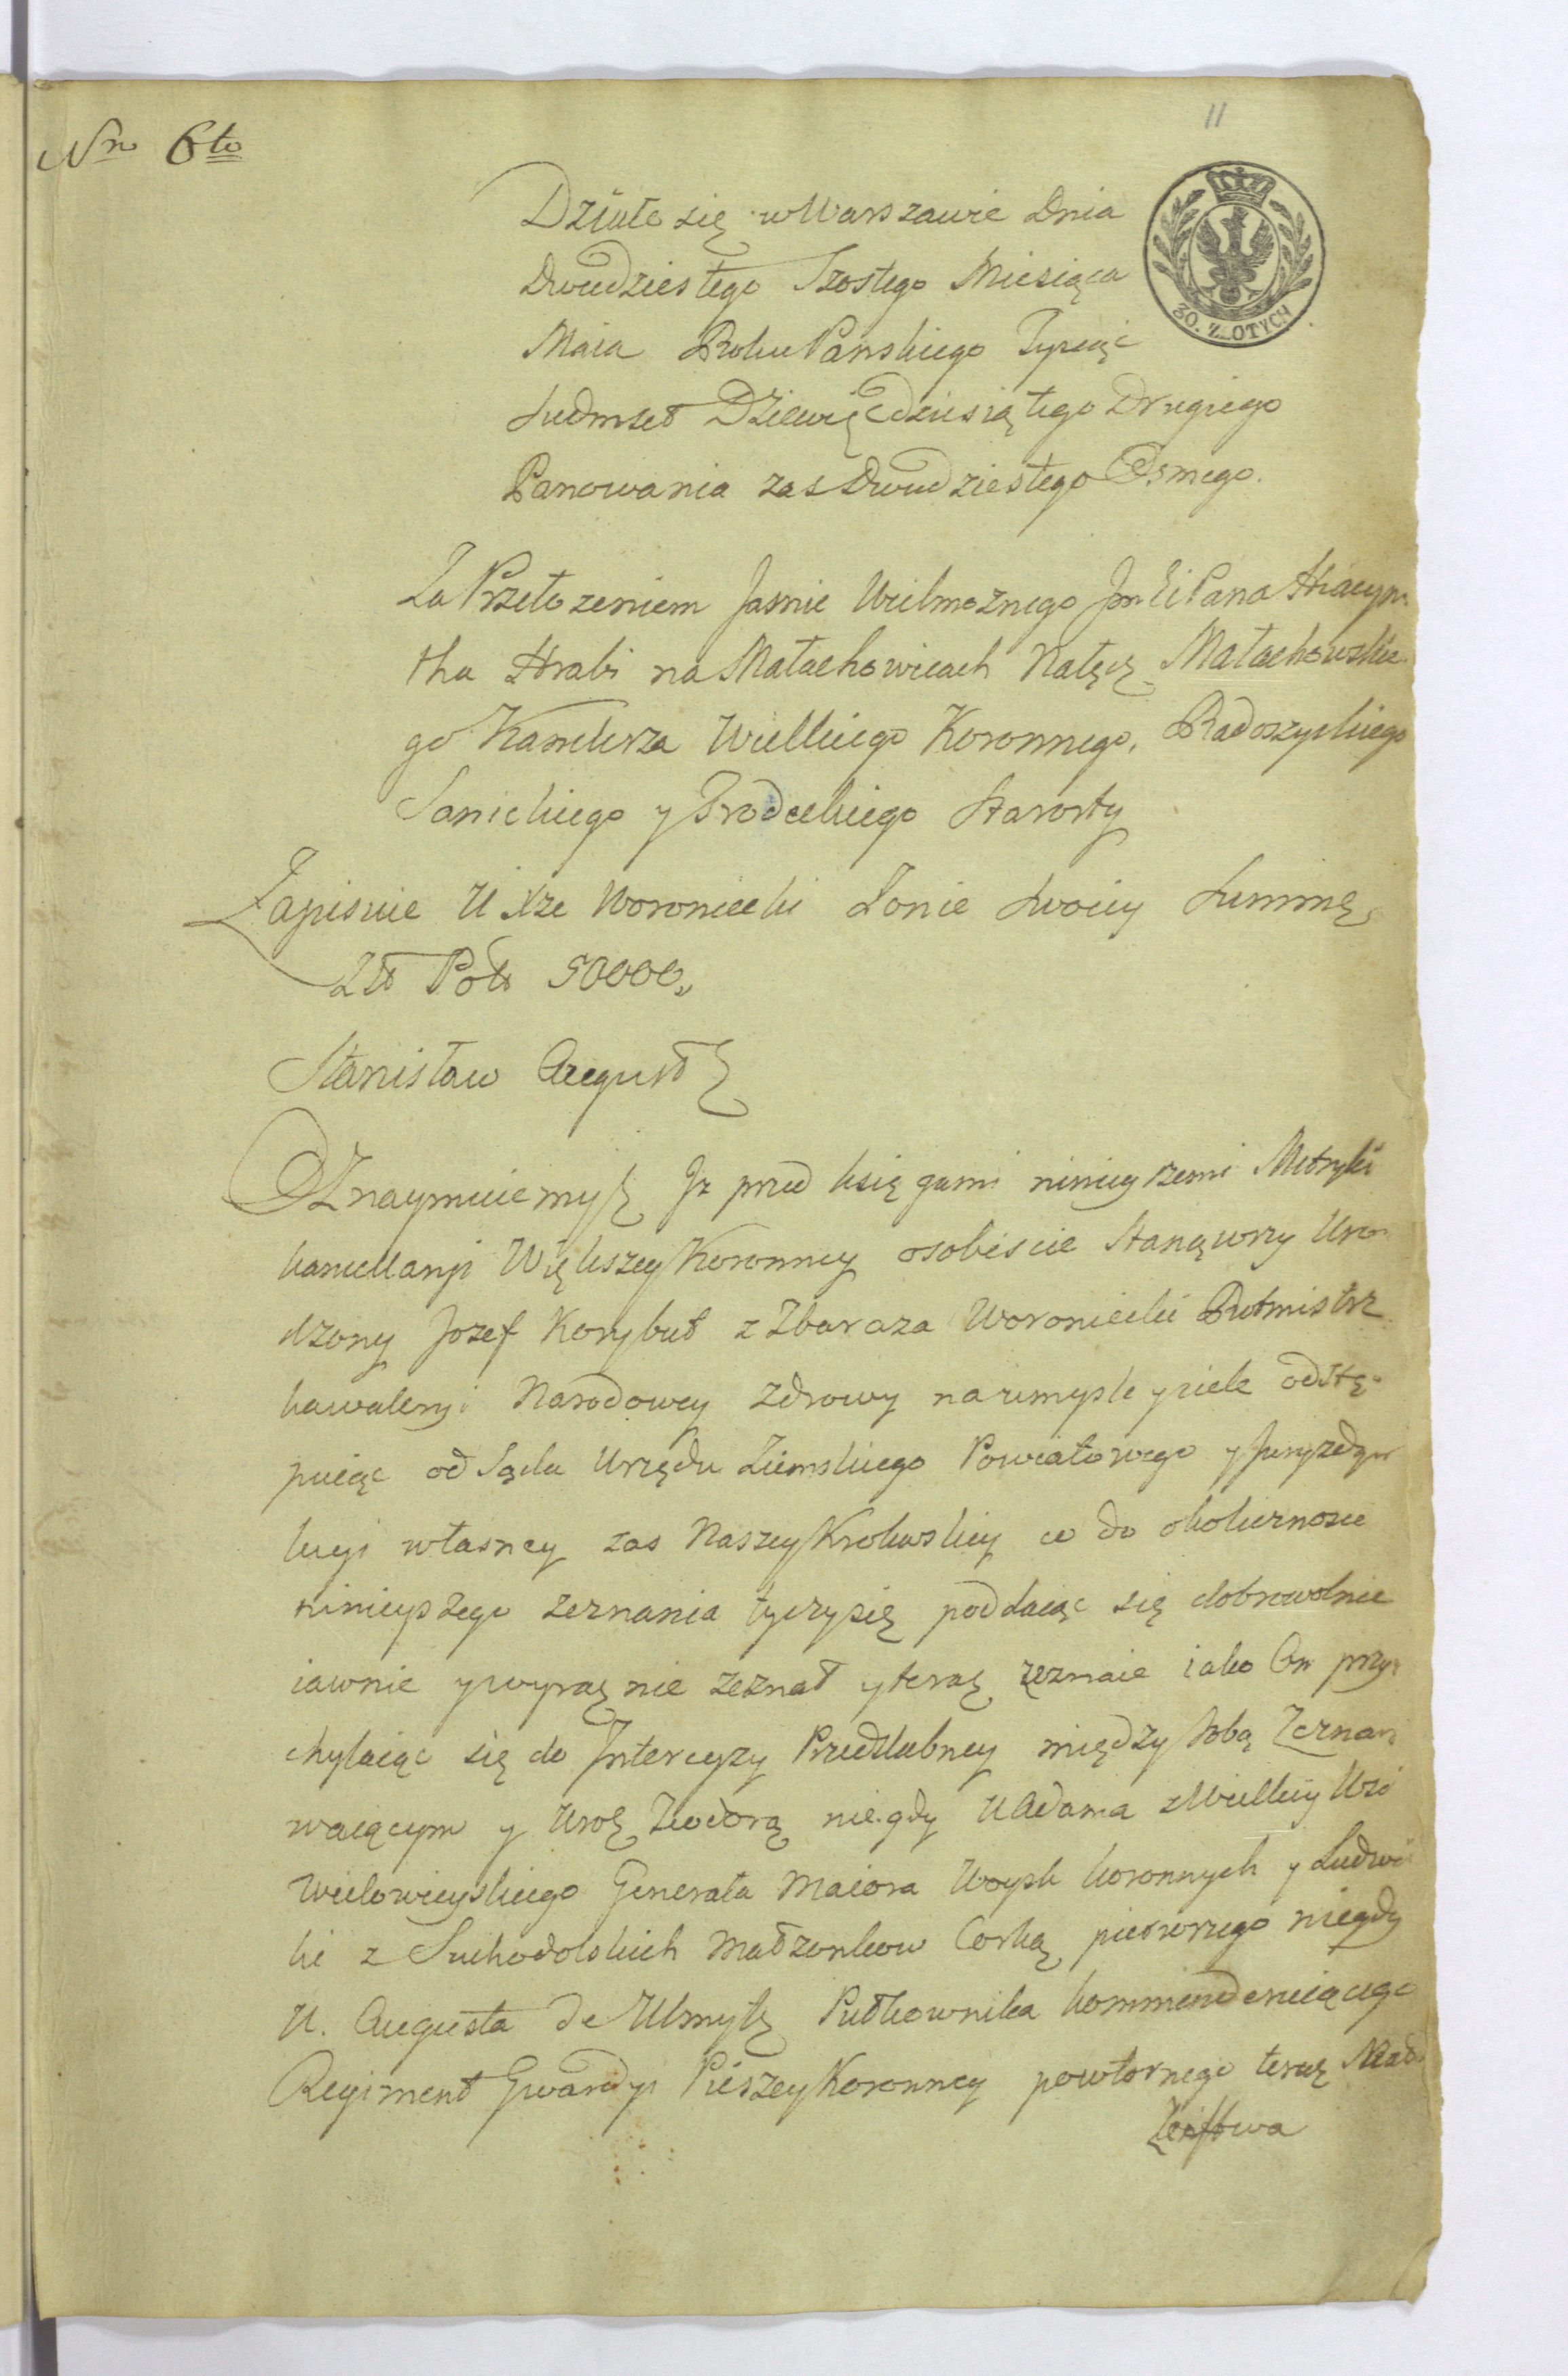 Nro 6to
11
Działo się w Warszawie Dnia
Dwudziestego Szostego Miesiąca
Maia Roku Panskiego Tysiąc
Siedmset Dziewięćdziesiątego Drugiego
Panowania zas Dwudziestego Osmego.
30. ZŁOTYCH
Za Przełozeniem Jasnie Wielmoznego Jmci Pana Hiacyn
tha Hrabi na Małachowicach Nałęcz Małachowskie
go Kanclerza Wielkiego Koronnego, Radoszyckiego
Sanickiego y Grodeckiego Starosty
Zapisuie U Xze Woroniecki Zonie Swoiey Summę
Złł Pol 50000,,
Stanisław August
Oznaymuiemy Iz przed księgami ninieyszemi Metryki
kancellaryi Większey Koronney osobiscie Stanąwszy Uro
dzony Jozef Korybut z Zbaraza Woroniecki Rotmistrz
kawaleryi Narodowey Zdrowy na umysle y ciele odstę-
puiąc od Sądu Urzędu Ziemskiego Powiatowego y Juryzdyk
kcyi własney zas Naszey Krolewskiey co do okolicznosci
ninieyszego zeznania tyczysię poddaiąc się dobrowolnie
iawnie y wyraznie zeznał y teraz zeznaie iako On przy
chylaiąc się do Intercyzy Przedslubney między Sobą Zeznan
waiącym y Uroz Teodorą niegdy U Adama z Wielkiey Wsi
Wielowieyskiego Generała Maiora Woysk koronnych y Ludwi
ki z Suchodolskich Małzonkow Corką pierwszego niegdy
U. Augusta de Ulmytz Pułkownika kommenderuiącego
Regiment Gwardyi Pieszey Koronney powtornego teraz Nad
Zeństwa